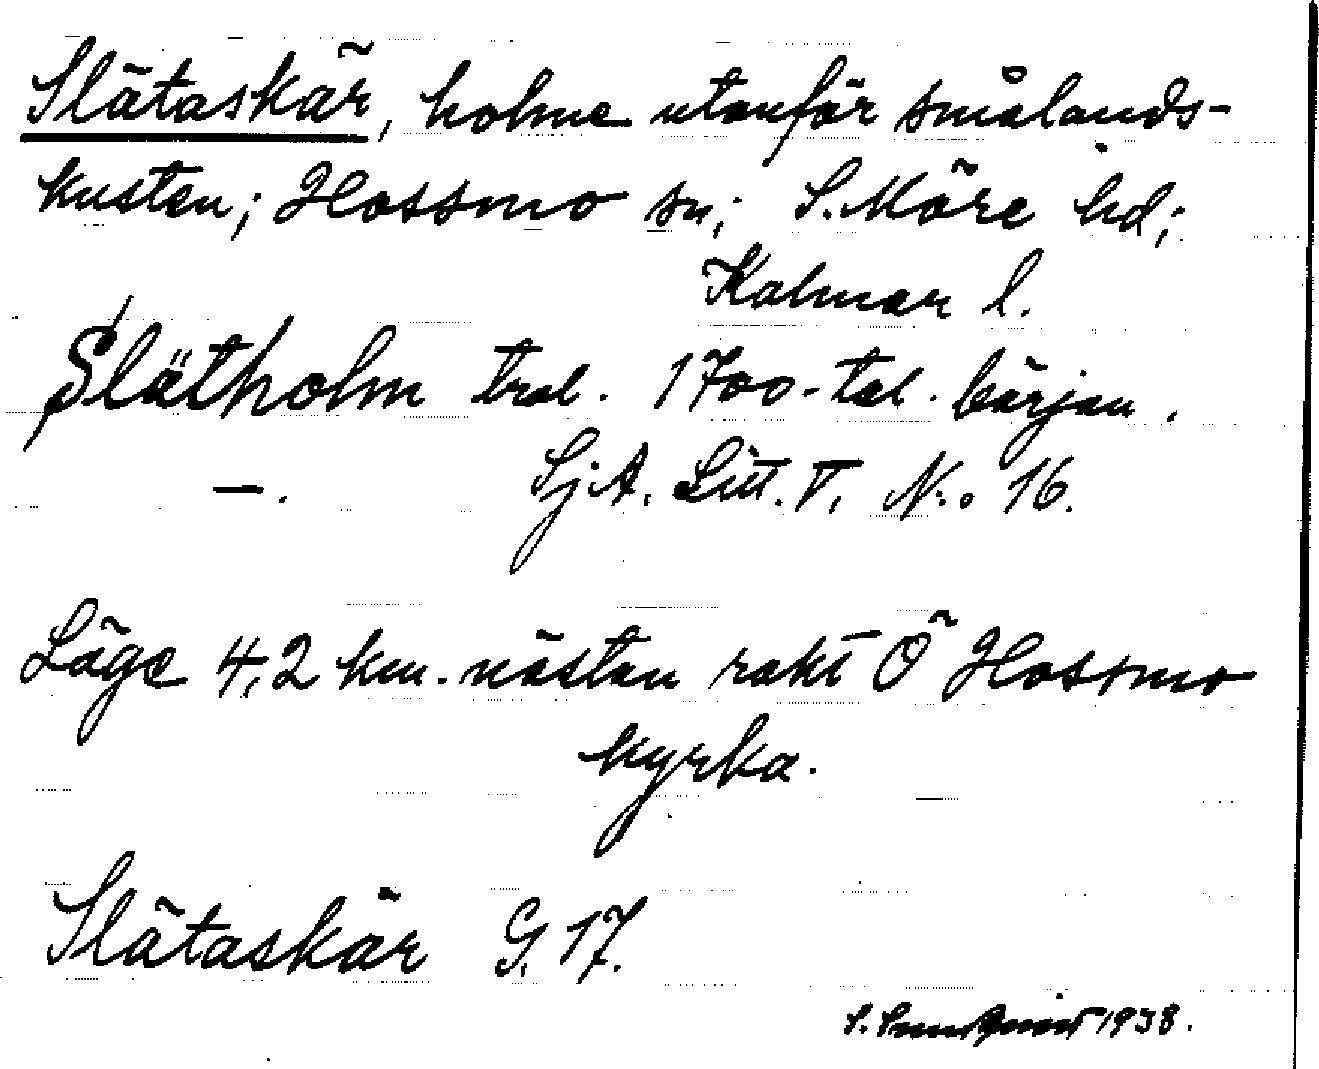 Slätaskär, holme utanför smålands-
kusten; Hossmo sn; S. Möre hd;
Kalmar l.
Slätholm trol. 1700-tal. början.
—. Sj.A. Litt. T. N:o 16.
Läge 4,2 km. nästan rakt Ö Hossmo
kyrka.
Slätaskär G. 17.
S. 1938.